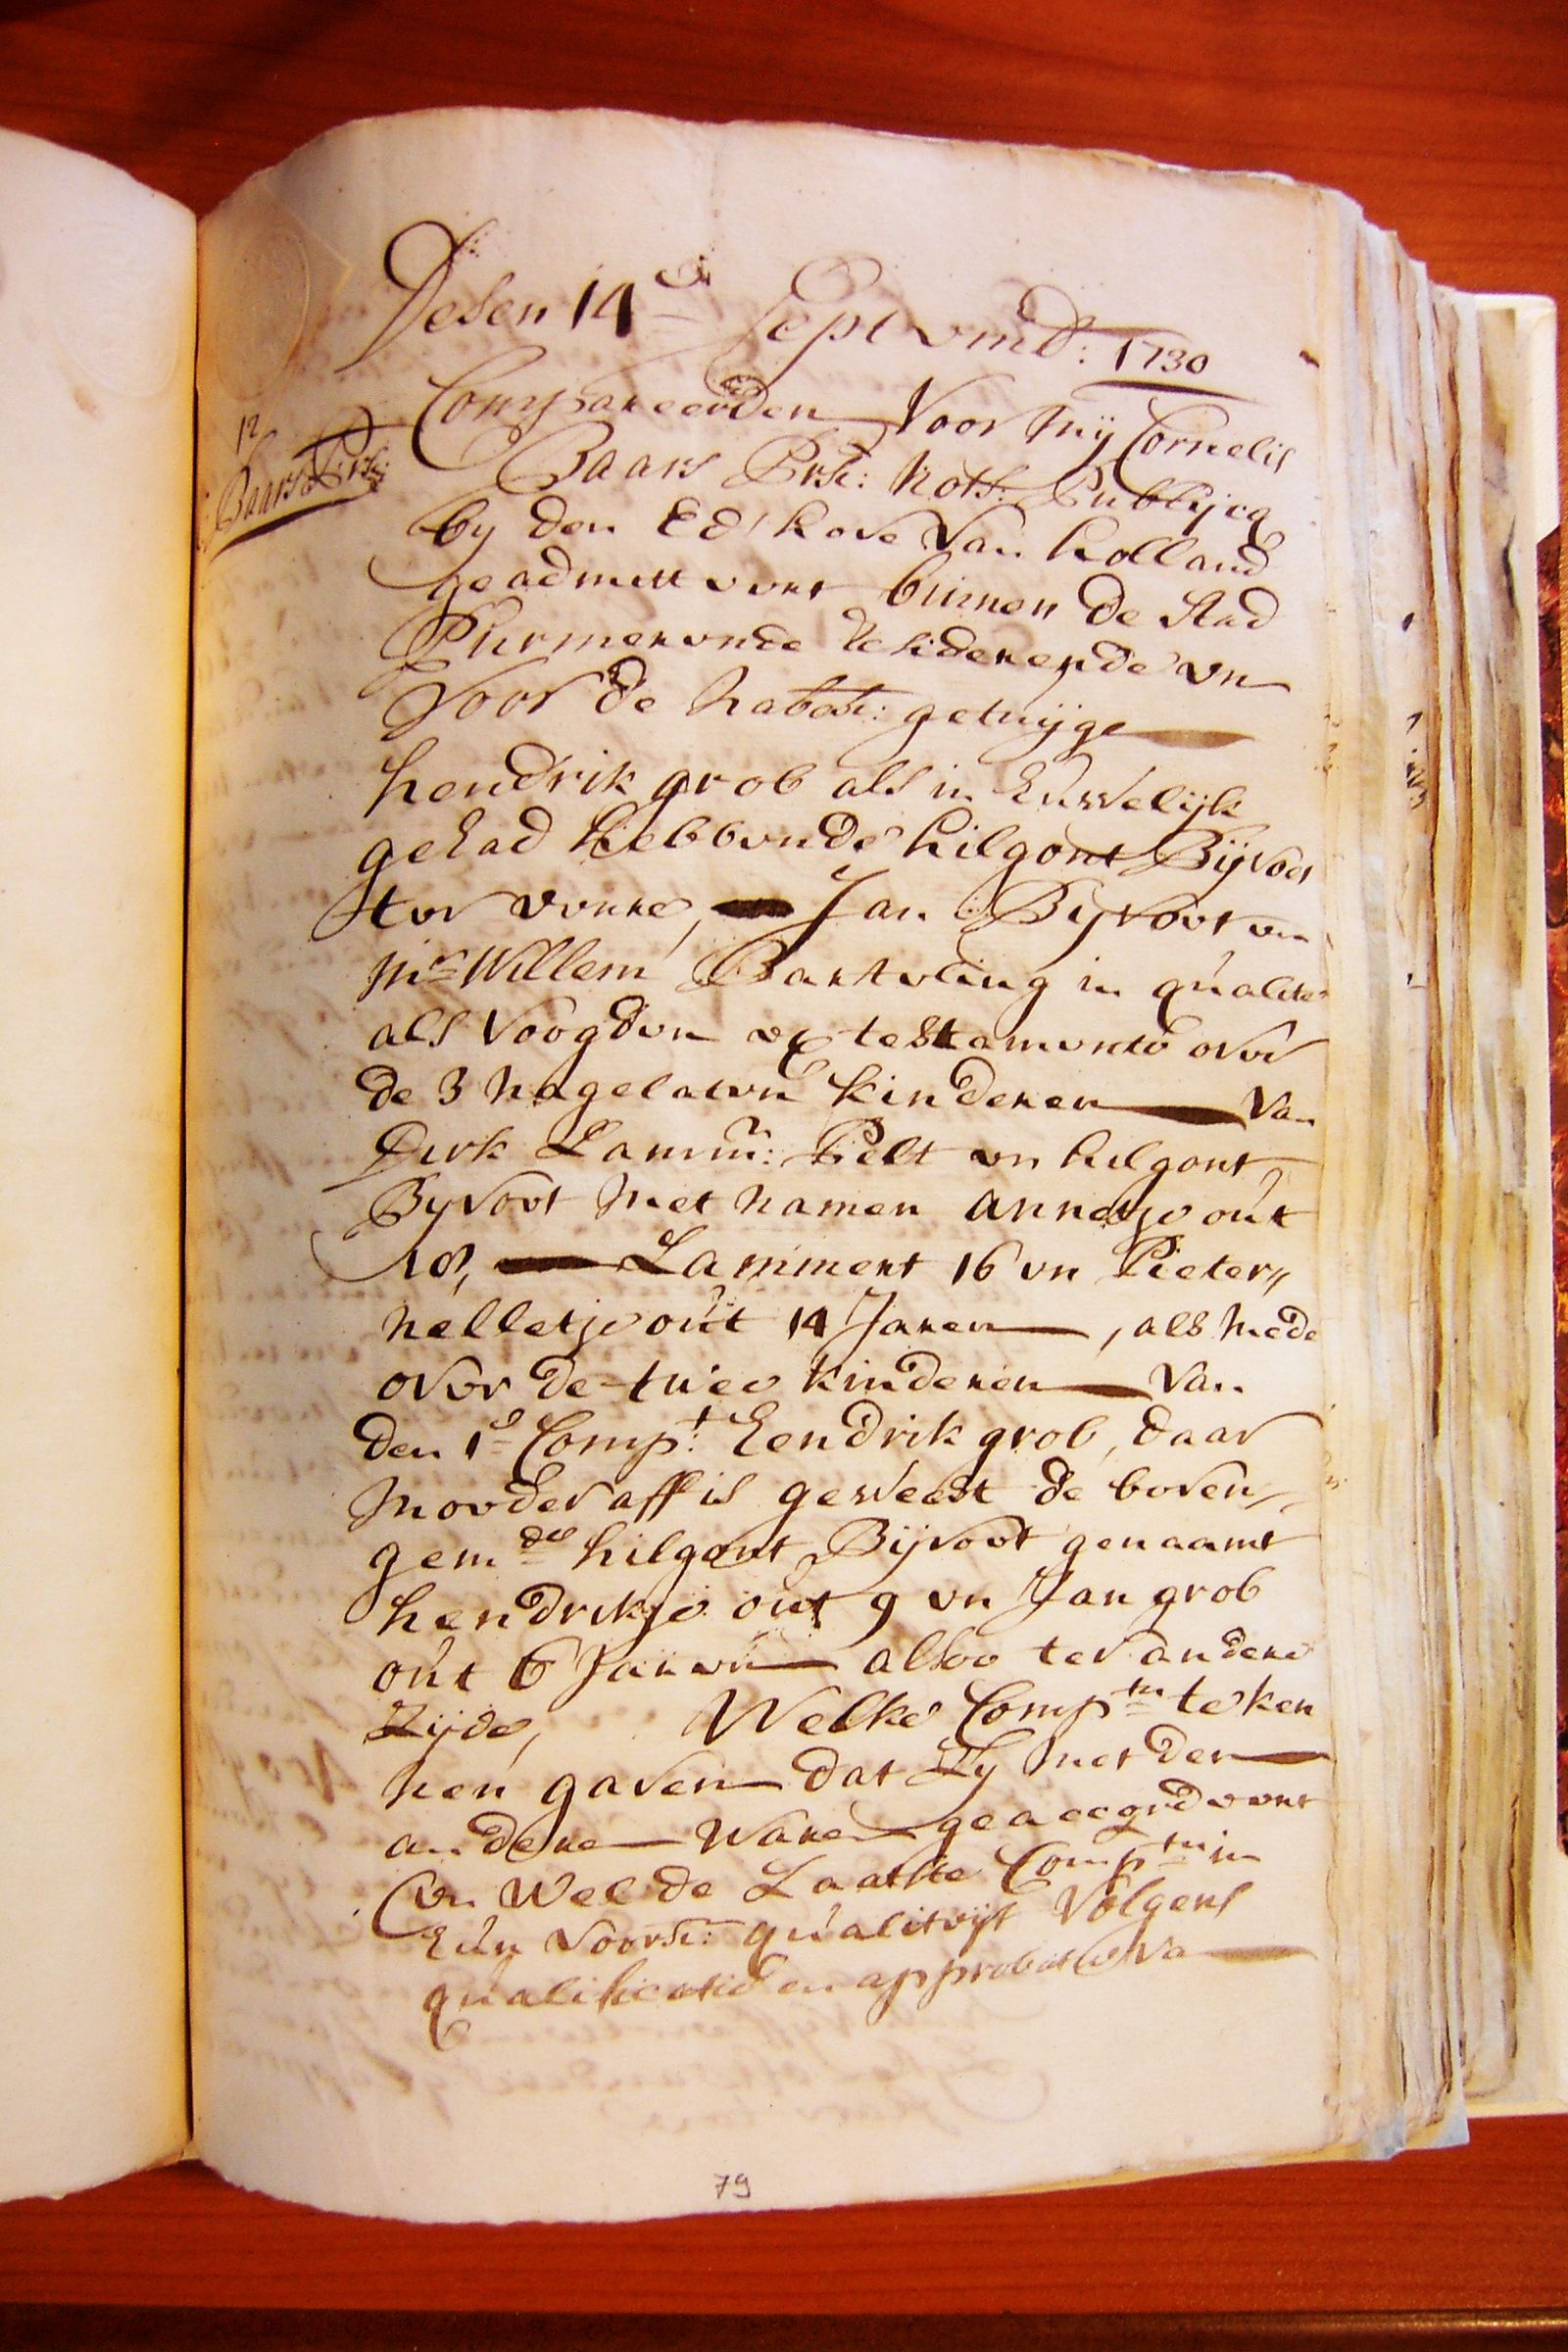 Desen 14e Septemb: 1730
Compareerden Voor mij Cornelis
12
Baars Prsz:
Baars Prsz: Nots: Publijcq
by den Ed' hove van holland
geadmitteert binnen de stad
Purmerende Residerende en
Voor de nabesz: getuijge
hendrik grob als in Huwelijk
gehad hebbende hilgont Bijvoet
ter eenre, Jan Byvoet en
mr Willem Barteling in qualite
als Voogden ex testamento over
de 3 nagelaten kinderen van
Dirk Lamm: Pielt en hilgont
Byvoet met namen annetje out
18, Lammert 16 en Pieter//
nelletje out 14 Jaren, als mede
over de twee kinderen van
den 1e Compt: Hendrik grob, daar
moeder aff is geweest de boven
gemde hilgont Bijvoet genaamt
hendrikje out 9 en Jan grob
out 6 Jaren alsoo ter andere
Zijde, Welke Compten te ken
nen gaven dat Zy met den
anderen Waren geaccordeert
en wel de Laatste Compten in
Hun voorsz: qualiteijt Volgens
qualificatie en approbatie va
79